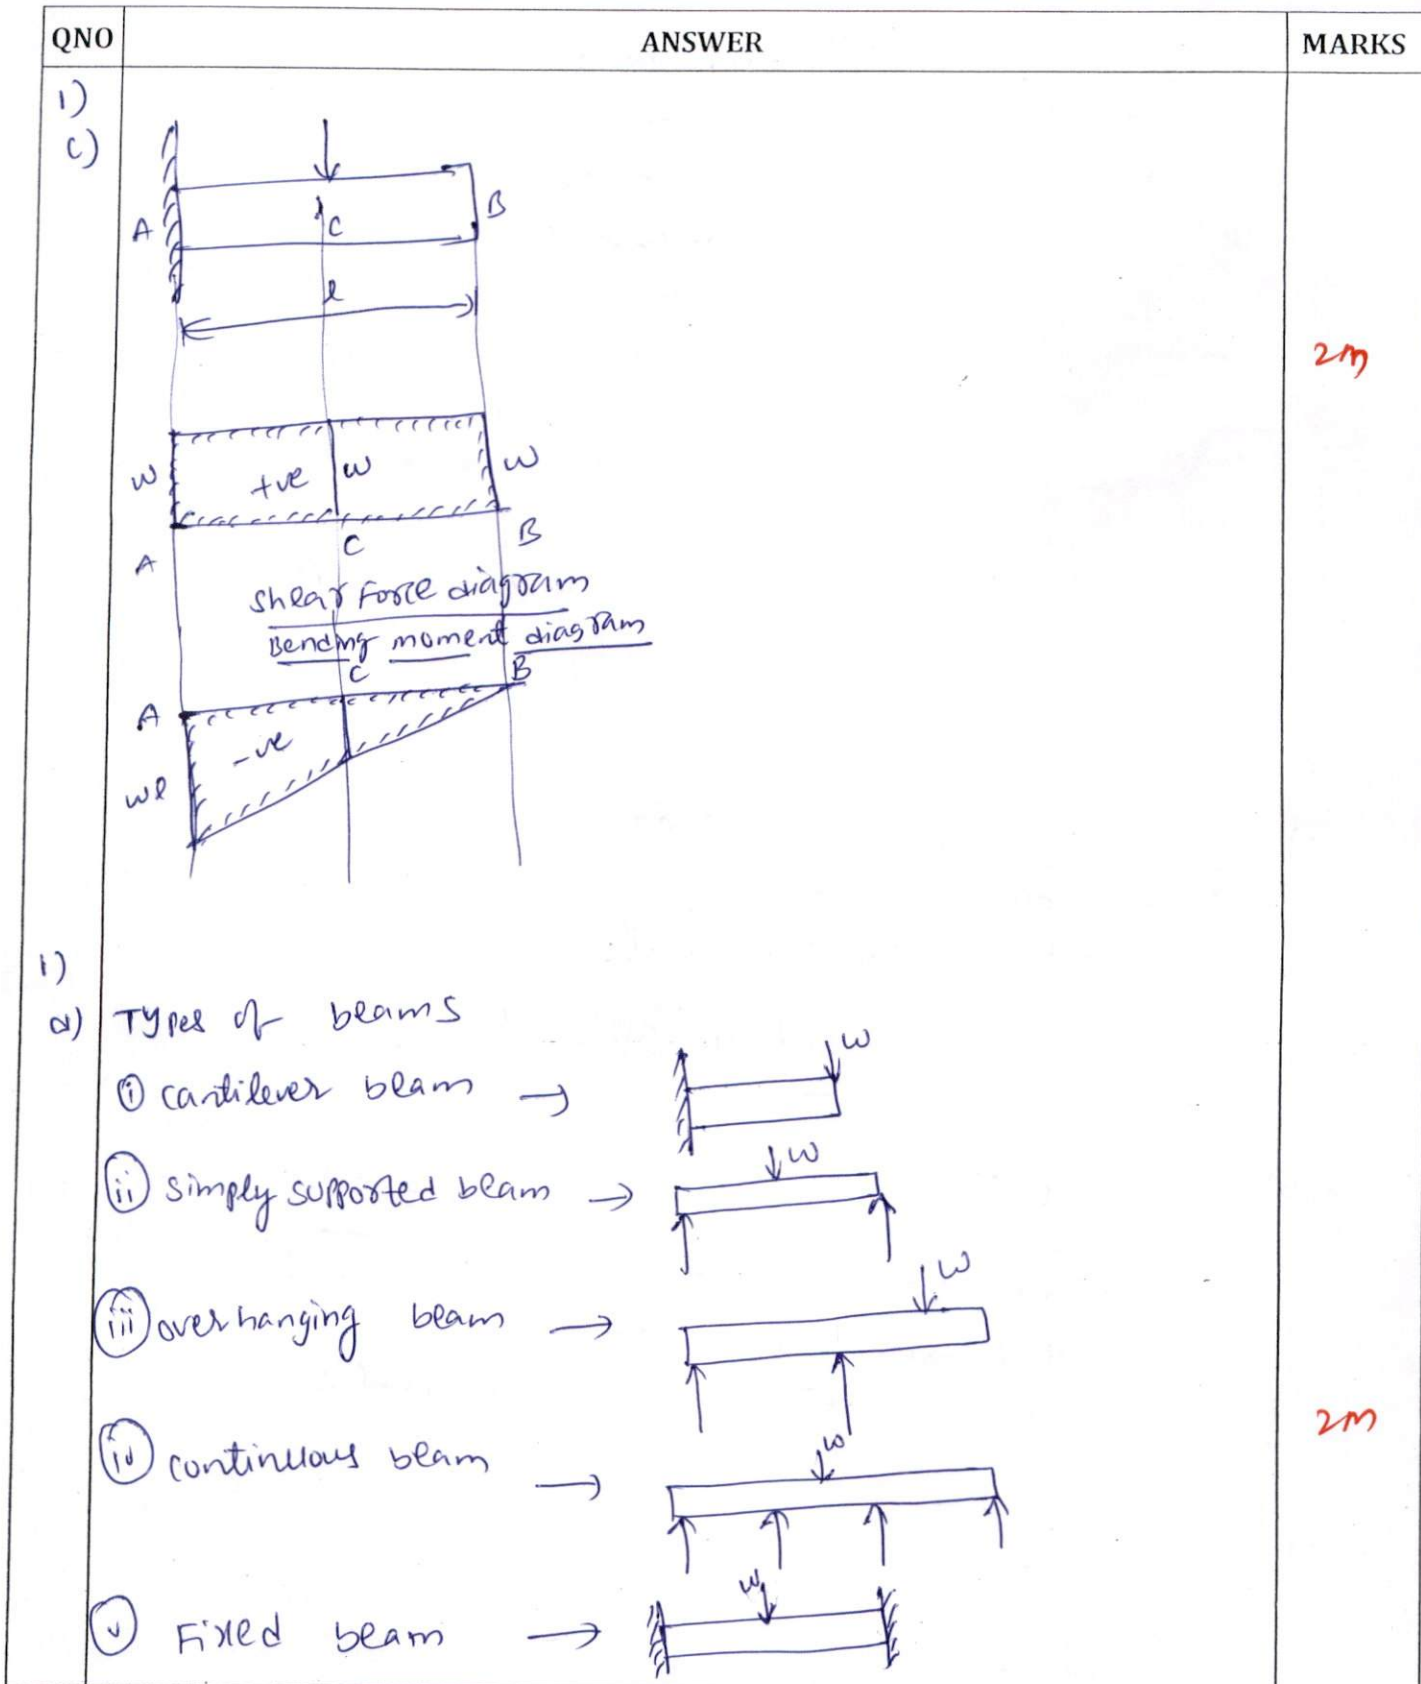 QNO ANSWER MARKS
1)
c)
A C B
l
2m
W +ve W W
A C B
Shear Force diagram
Bending moment diagram
A C B
-ve
wl
1)
a) Types of beams
W
i cantilever beam →
W
ii simply supported beam →
W
iii overhanging beam →
2m
W
iv continuous beam →
W
v Fixed beam →